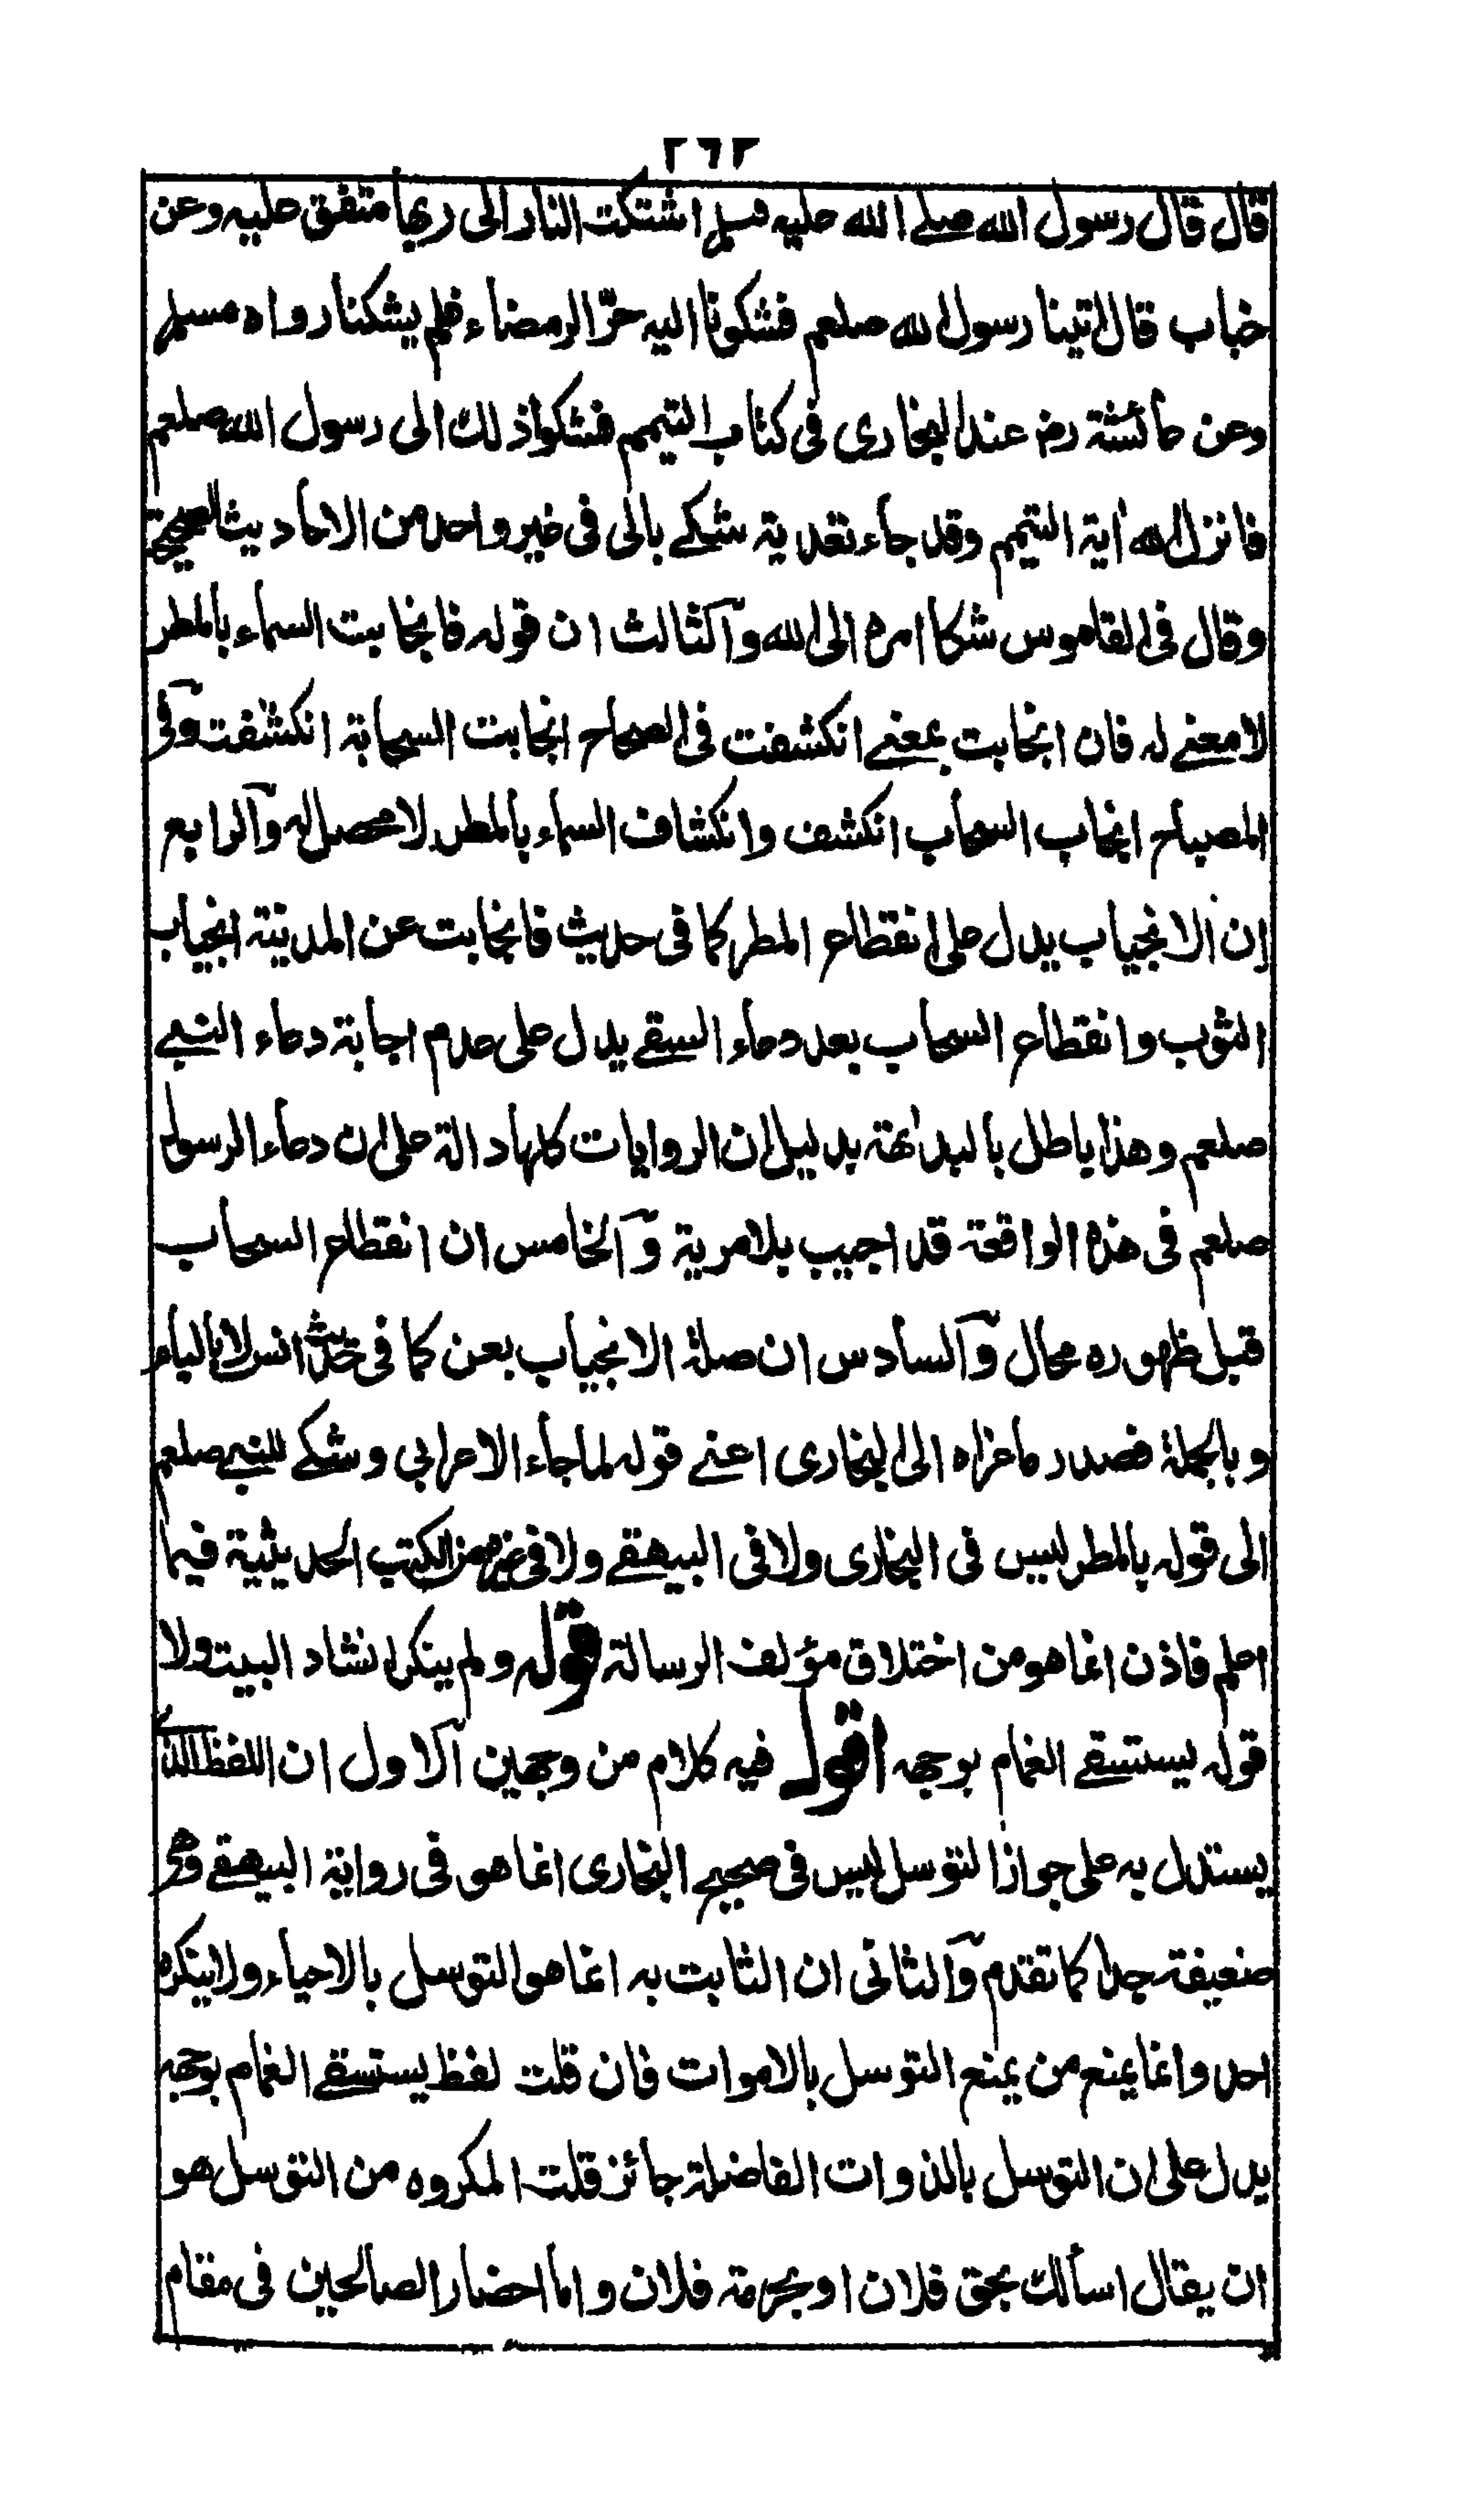 ٢٦٢
قال قال رسول الله صلے الله عليه وسلم اشتكت النار الى ربها متفق عليه وعن
خباب قال اتينا رسول الله صلعم فشكونا اليه حرّ الرمضاء فلم يشكنا رواه مسلم
وعن عائشة رضـ عند البخارى فى كتاب التيمم فشكوا ذلك الى رسول الله صلعم
فانزل الله اٰية التيمم وقد جاء تعدية شكے بالى فى غير واحد من الاحاديث الصحيحة
وقال فى القاموس شكا امره الى الله والثالث ان قوله فانجابت السماء بالمطر
لا معنے له فان انجابت بمعنے انكشفت فى الصحاح انجابت السحابة انكشفت وفى
المصباح انجاب السحاب انكشف وانكشاف السماء بالمطر لا محصل له والرابع
ان الانجياب يدل على انقطاع المطر كما فى حديث فانجابت عن المدينة انجياب
الثوب وانقطاع السحاب بعد دعاء السقے يدل على عدم اجابة دعاء النبے
صلعم وهذا باطل بالبداهة بدليل ان الروايات كلها دالة على ان دعاء الرسول
صلعم فى هذه الواقعة قد اجيب بلا مرية والخامس ان انقطاع السحاب
قبل ظهوره محال والسادس ان صلة الانجياب بعن كما فى حديث انس لا بالباء
وبالجملة فصدر ما عزاه الى البخارى اعنے قوله لما جاء الاعرابي وشكے للنبے صلعم
الى قوله بالمطر ليس فى البخارى ولا فى البيهقے ولا فى غيرهما من الكتب الحديثية فيما
اعلم فاذن انما هو من اختلاق مؤلف الرسالة قوله ولم ينكر انشاد البيت ولا
قوله يستسقے الغمام بوجهه اقول فيه كلام من وجهين الاول ان اللفظ الذى
يستدل به على جواز التوسل ليس فى صحيح البخارى انما هو فى رواية البيهقے وهى
ضعيفة جدا كما تقدم والثانى ان الثابت به انما هو التوسل بالاحياء ولا ينكره
احد وانما يمنع من يمنع التوسل بالاموات فان قلت لفظ يستسقے الغمام بوجهه
يدل على ان التوسل بالذوات الفاضلة جائز قلت المكروه من التوسل هو
ان يقال اسألك بحق فلان او بحرمة فلان واما احضار الصالحين فى مقام